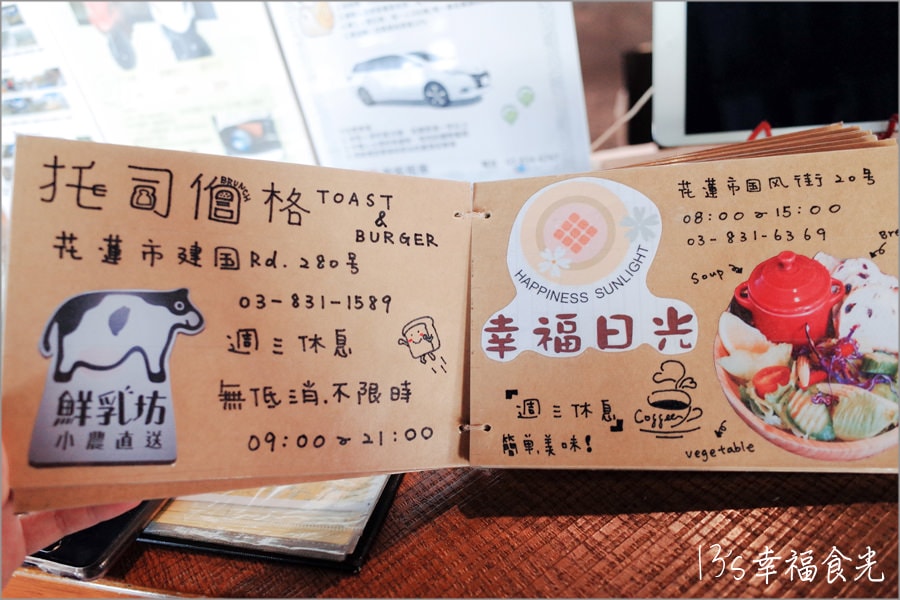 托司僧格 TOAST
BRUNCH
&
BURGER
花蓮市建国Rd. 280号
03-831-1589
週三休息
無低消.不限時
09:00~21:00
鮮乳坊
小農直送
HAPPINESS SUNLIGHT
幸福日光
花蓮市国风街20号
08:00~15:00
03-831-6369
soup
Bre
『週三休息』
簡単,美味!
Coffee
vegetable
13's幸福食光